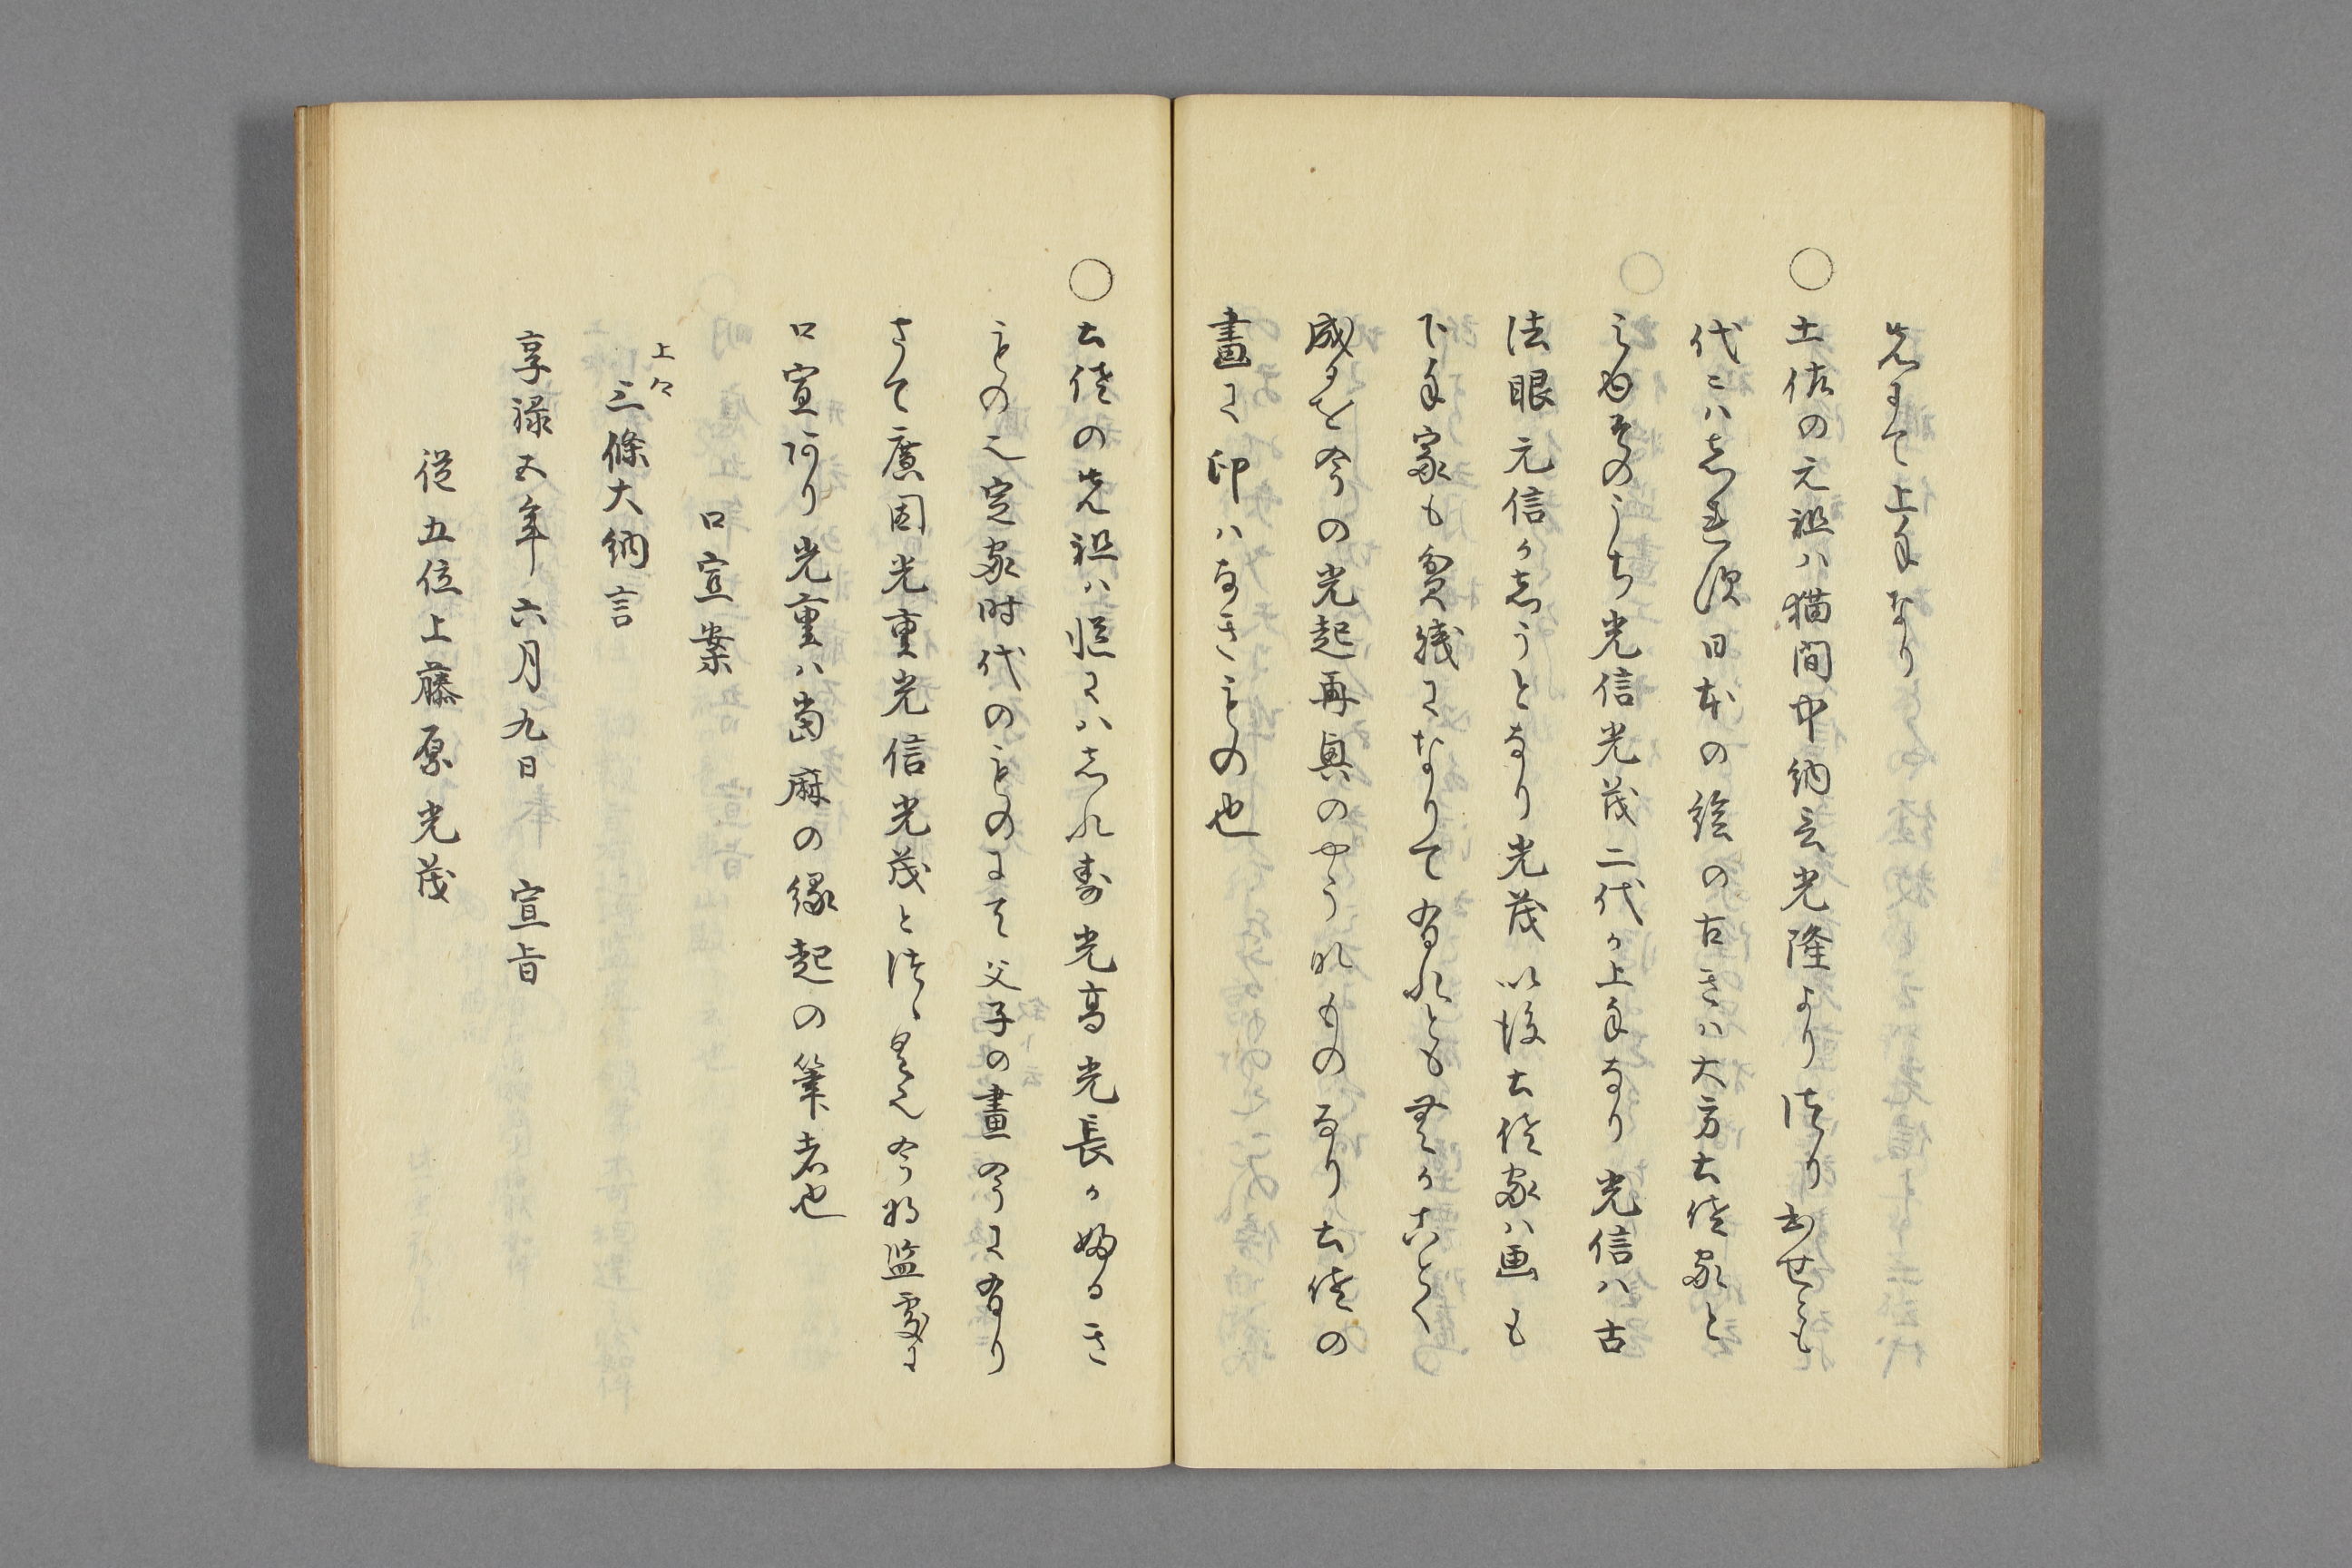 先にて上手なり
○土佐の元祖ハ猫間中納言光隆より传り出せとも
代〻ハしれ須日本の絵の古きハ大方土佐家と
みゆそのうち光信光茂二代か上手なり光信ハ古
法眼元信かしうとなり光茂以後土佐家ハ画も
下手家も貧賎になりて有れとも無かことく
成タを今の光起再興のやうれものなり土佐の
畫に印ハなきもの也
○土佐の先祖ハ慥にハしれす光高光長か婦るき
もの定家时代のものにて父子の畫今に有り
さて廣周光重光信光茂と
口宣阿り光重ハ當麻の縁起の筆者也
口宣案
上々
三條大納言
享禄五年六月九日 宣旨
従五位上藤原光茂